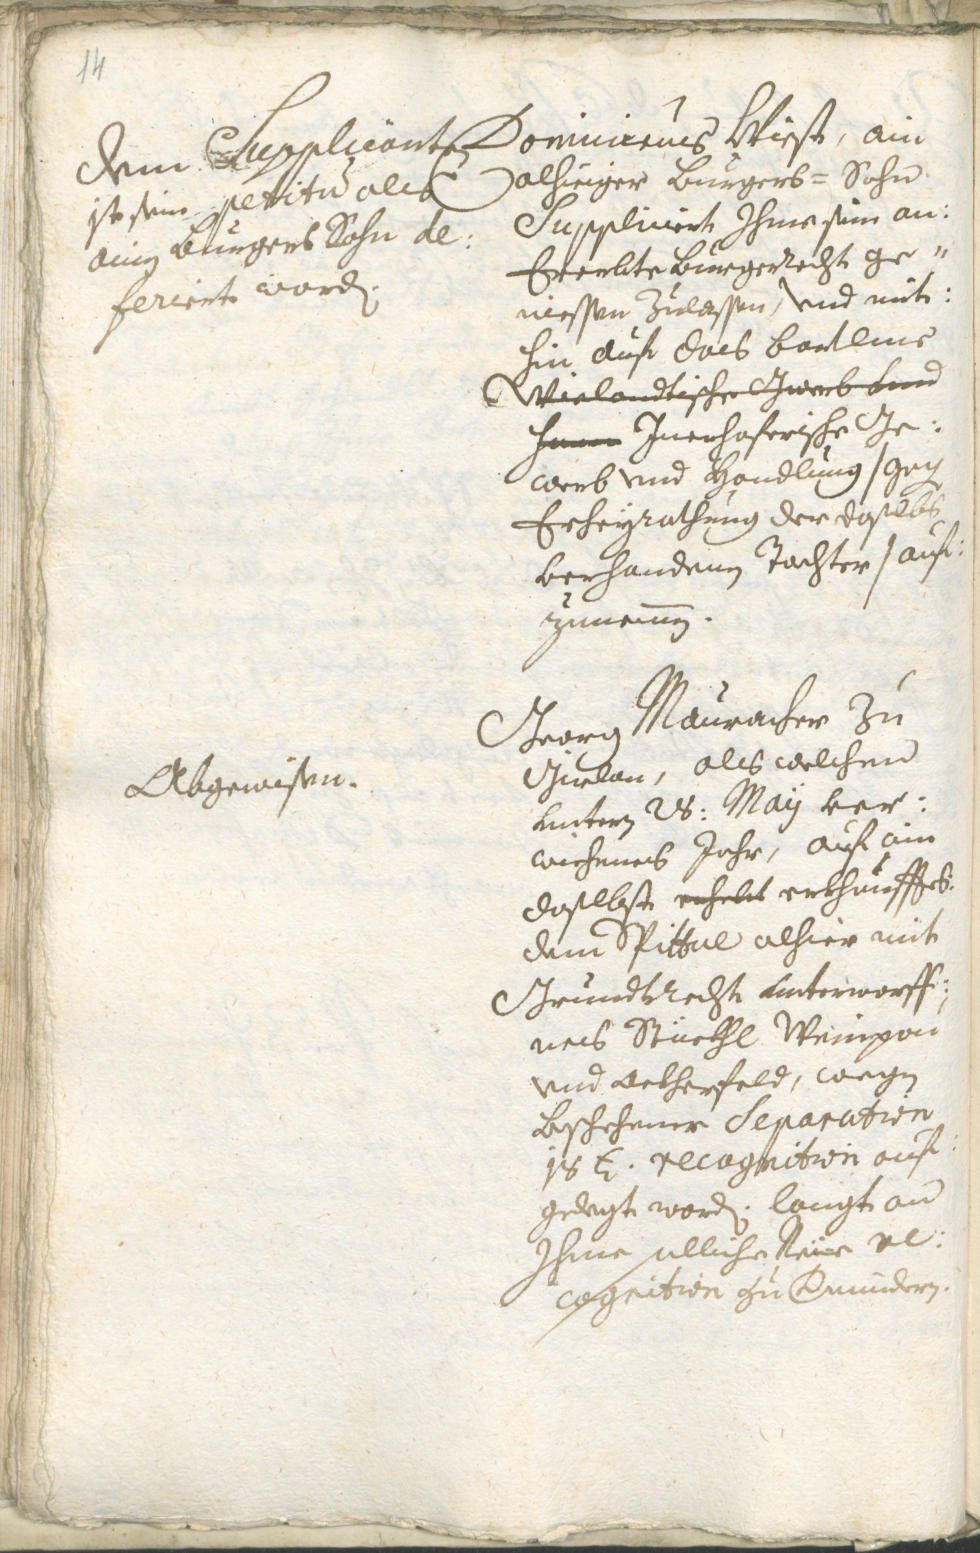 14
Dem Supplicanten
ist sein petitum als
ainem Burgers Sohn de:
feriert worden.
Dominicus Wiest, ain
alhieiger Burgers=Sohn
Supplicirt Ihme sein an:
Ererbte Burgerrecht ge"
niessen zulassen, vnd mit:
hin auf das Bartlme
Wielandtische Gwerb vnd
Innerhoferische Ge:
werb vnd Handlung /gegen
Erheÿrathung der daselbs
verhandenen Tochter/ auf:
zunemen.
Abgewisen.
Georg Mauracher zu
Girlan, als welchem
vntern 28: Maÿ ver:
wichenes Jahr, auf ain
daselbst erkhaufftes
dem Spittal alhier mit
Grundtrecht vnterworff:
nes Stückhl Weinpau
vnd Ackherfeld, wegen
beschehener Separation
18 x. recognition auf:
gelegt worden. langt an
Ihme solliche re:
cognition zu mündern.